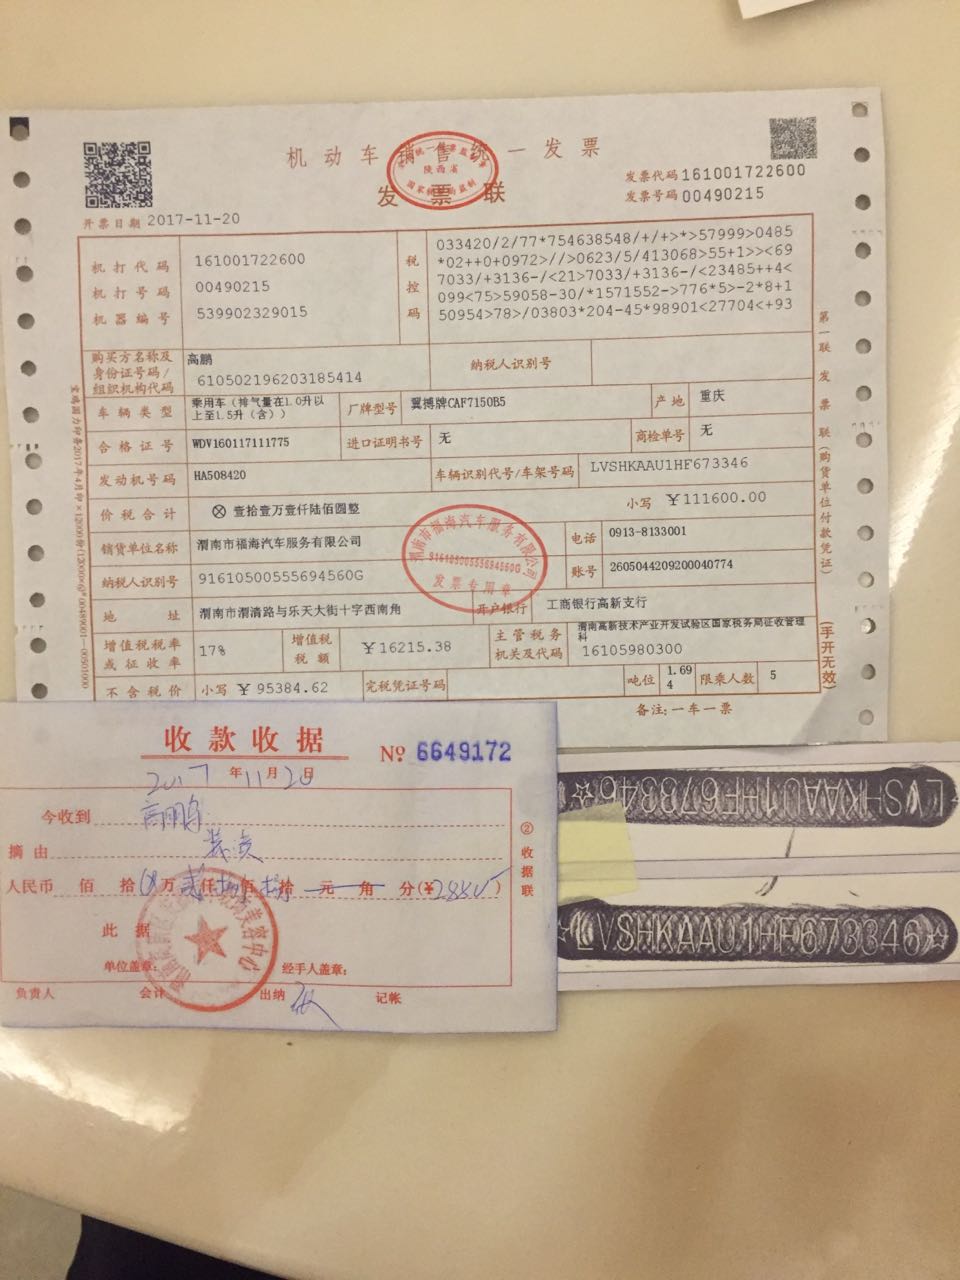 机动车销售统一发票
发票联
发票代码 161001722600
发票号码 00490215
开票日期 2017-11-20
机打代码 161001722600
机打号码 00490215
机器编号 539902329015
税控码
033420/2/77*754638548/+/+>*>57999>0485
*02++0+0972>/>//>0623/5/413068>55+1>><69
7033/+3136-/<21>7033/+3136-/<23485++4<
099<75>59058-30/*1571552->776*5>-2*8+1
50954>78>/03803*204-45*98901<27704<+93
购买方名称及身份证号码/组织机构代码 高鹏
610502196203185414
纳税人识别号
车辆类型 乘用车(排气量在1.0升以上至1.5升(含))
厂牌型号 翼搏牌CAF7150B5
产地 重庆
合格证号 WDV160117111775
进口证明书号 无
商检单号 无
发动机号码 HA508420
车辆识别代号/车架号码 LVSHKAAU1HF673346
价税合计 ⊗ 壹拾壹万壹仟陆佰圆整
小写 ¥111600.00
销货单位名称 渭南市福海汽车服务有限公司
电话 0913-8133001
纳税人识别号 91610500555694560G
账号 2605044209200040774
地址 渭南市渭清路与乐天大街十字西南角
开户银行 工商银行高新支行
增值税税率或征收率 17%
增值税税额 ¥16215.38
主管税务机关及代码 渭南高新技术产业开发试验区国家税务局征收管理科
16105980300
不含税价 小写 ¥95384.62
完税凭证号码
吨位 1.694
限乘人数 5
备注:一车一票
第一联 发票联(购货单位付款凭证)
(手开无效)
陕西省
国家税务局监制
渭南市福海汽车服务有限公司
91610500555694560G
发票专用章
收款收据
№ 6649172
2017年11月20日
今收到 高鹏
摘由 装潢
人民币 佰 拾 万 仟 佰 拾 元 角 分(¥
②收据联
此据
单位盖章:
经手人盖章:
负责人 会计 出纳 记帐
☆LVSHKAAU1HF673346
☆LVSHKAAU1HF673346☆